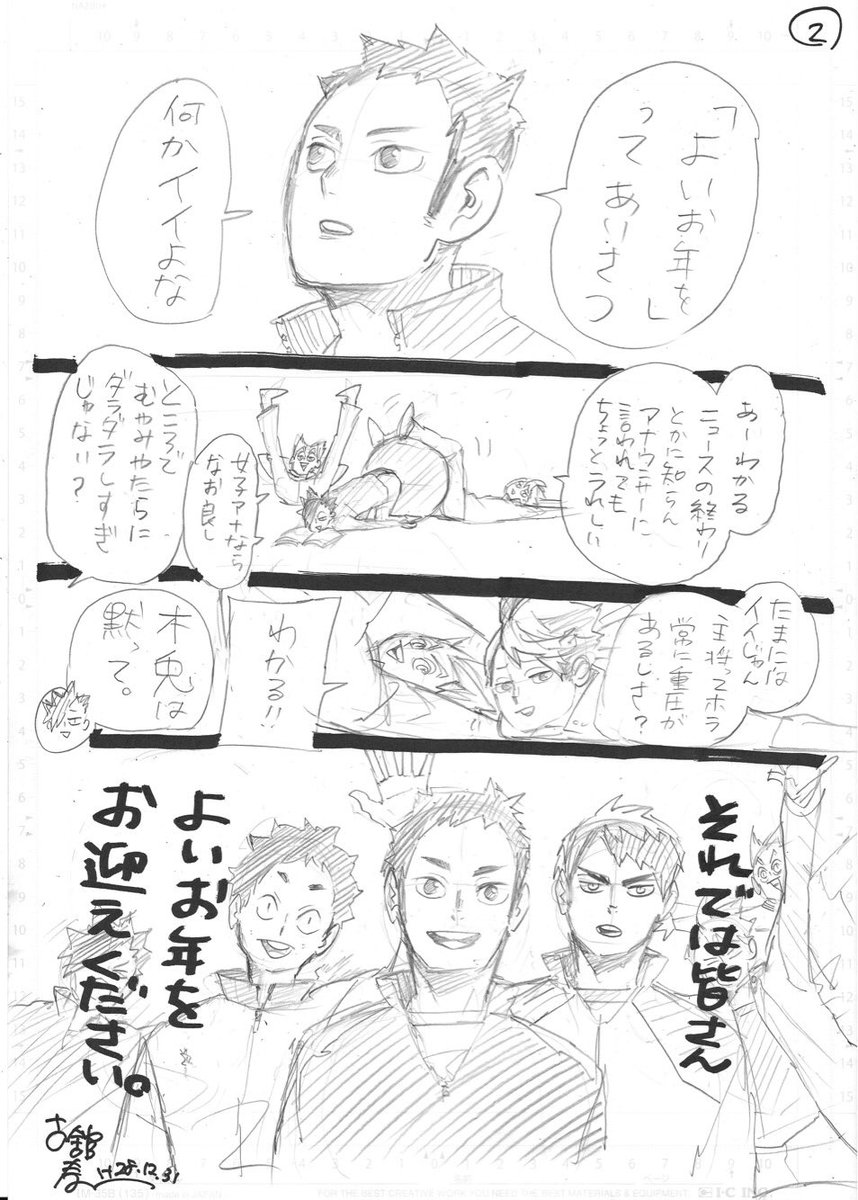 2
「よいお年を」
って あいさつ
何かイイよな
あーわかる
ニュースの終わり
とかに知らん
アナウンサーに
言われても
ちょっとうれしい
女子アナなら
なお良し
ところで
むやみやたらに
ダラダラしすぎ
じゃない?
たまには
イイじゃん
主将ってホラ
常に重圧が
あるじさ?
わかる!!
木兎は
黙って。
それでは皆さん
よいお年を
お迎えください。
古舘
春
H28.12.31
FOR THE BEST CREATIVE WORK YOU NEED THE BEST MATERIALS & EQUIPMENT.
I・C INC.